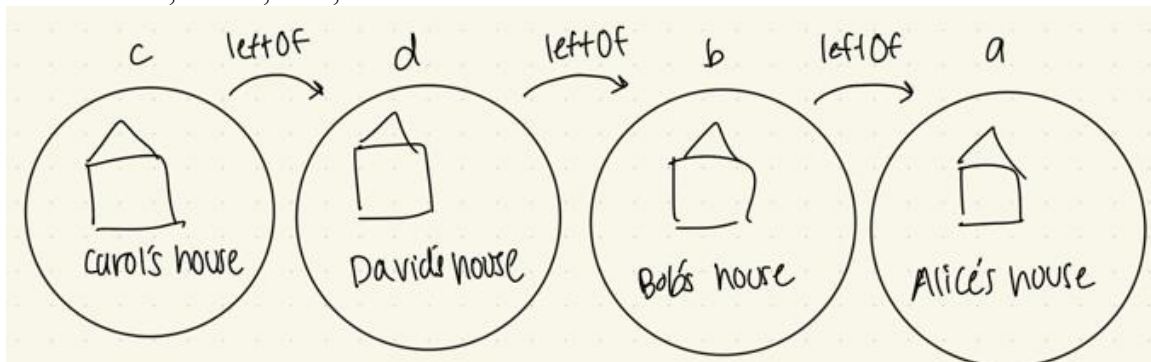 c leftOf d leftOf b leftOf a
Carol's house David's house Bob's house Alice's house